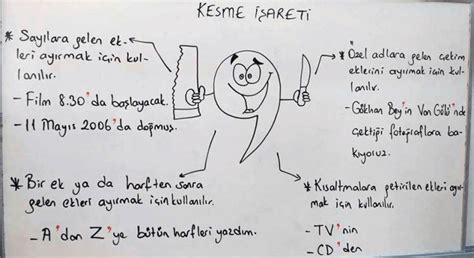 KESME İŞARETİ
* Sayılara gelen ek-
leri ayırmak için kul-
lanılır.
- Film 8.30'da başlayacak.
- 11 Mayıs 2006'da doğmuş.
* Özel adlara gelen çekim
eklerini ayırmak için kul-
lanılır.
- Gökhan Bey'in Van Gölü'nde
çektiği fotoğraflara ba-
kıyoruz.
* Bir ek ya da harften sonra
gelen ekleri ayırmak için kullanılır.
- A'dan Z'ye bütün harfleri yazdım.
* Kısaltmalara getirilen ekleri ayır-
mak için kullanılır.
- TV'nin
- CD'den